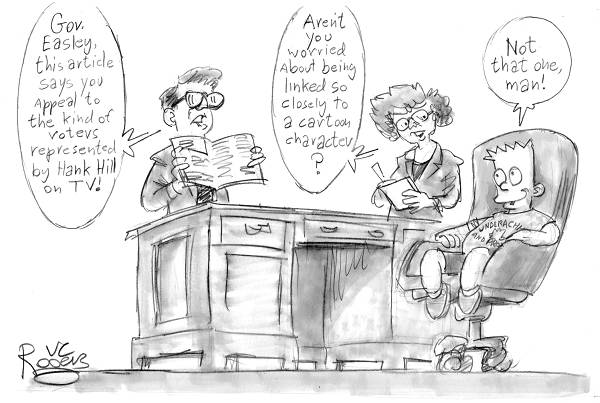 Gov.
Easley,
this article
says you
Appeal to
the kind of
voters
represented
by Hank Hill
on TV!
Aren't
you
worried
About being
linked so
closely to
a cartoon
character
?
Not
that one,
man!
UNDERACH
AND
VC
ROGERS